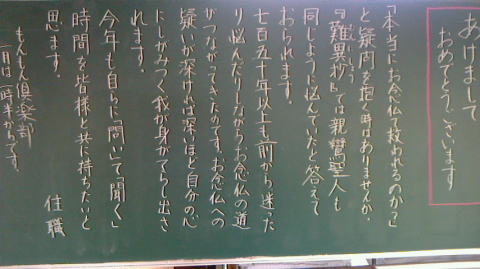 あけまして
おめでとうございます
「本当にお念仏で救われるのか?」
と疑問を抱く時はありませんか。
『歎異抄』では親鸞聖人も
同じように悩んでいたと答えて
おられます。
七百五十年以上も前から迷った
り悩んだりしながらお念仏の道
がつながってきたのです。お念仏への
疑いが深ければ深いほど自分の心
にしがみつく我が身がてらし出さ
れます。
今年も自らに問いて「聞く」
時間を皆様と共に持ちたいと
思います。
住職
もんもん倶楽部
一月は一時半からです。